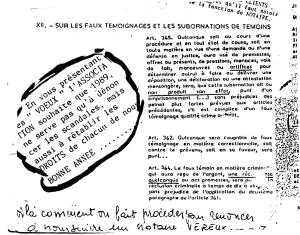 LIENTS
qu'il fait savoir
la fonction de NOTAIRE.
XII. - SUR LES FAUX TEMOIGNAGES ET LES SUBORNATIONS DE TEMOINS
En vous présentant
VOEUX L'ASSOCIA
TION souhaite que 1989
ne serve pas qu'à dénon
cer les scandales mais
aussi à rétablir les
DROITS de chacun de nous
BONNE ANNEE
Art. 365. Quiconque soit au cours d'une
procédure et en tout état de cause, soit en
toute matière en vue d'une demande ou d'une
défense en justice, aura usé de promesses,
offres ou présents, de pressions, menaces, voies
de fait, manoeuvres ou artifices pour
déterminer autrui à faire ou délivrer une
déposition, une déclaration ou une attestation
mensongère, sera, que cette subornation ait ou
non produit son effet, puni d'un
emprisonnement sans préjudice des
peines plus fortes prévues aux articles
précédents, s'il est complice d'un faux
témoignage qualifié crime
Art. 362. Quiconque sera coupable de faux
témoignage en matière correctionnelle, soit
contre le prévenu, soit en sa faveur, sera
puni
Art. 364. Le faux témoin en matière criminel
qui aura reçu de l'argent, une
quelconque ou des promesses, sera
reclusion criminelle à temps de dix à
sans préjudice de l'application du deuxième
paragraphe de l'article 361.
comment on fait procéder ou renoncer
à un notaire VEREUX